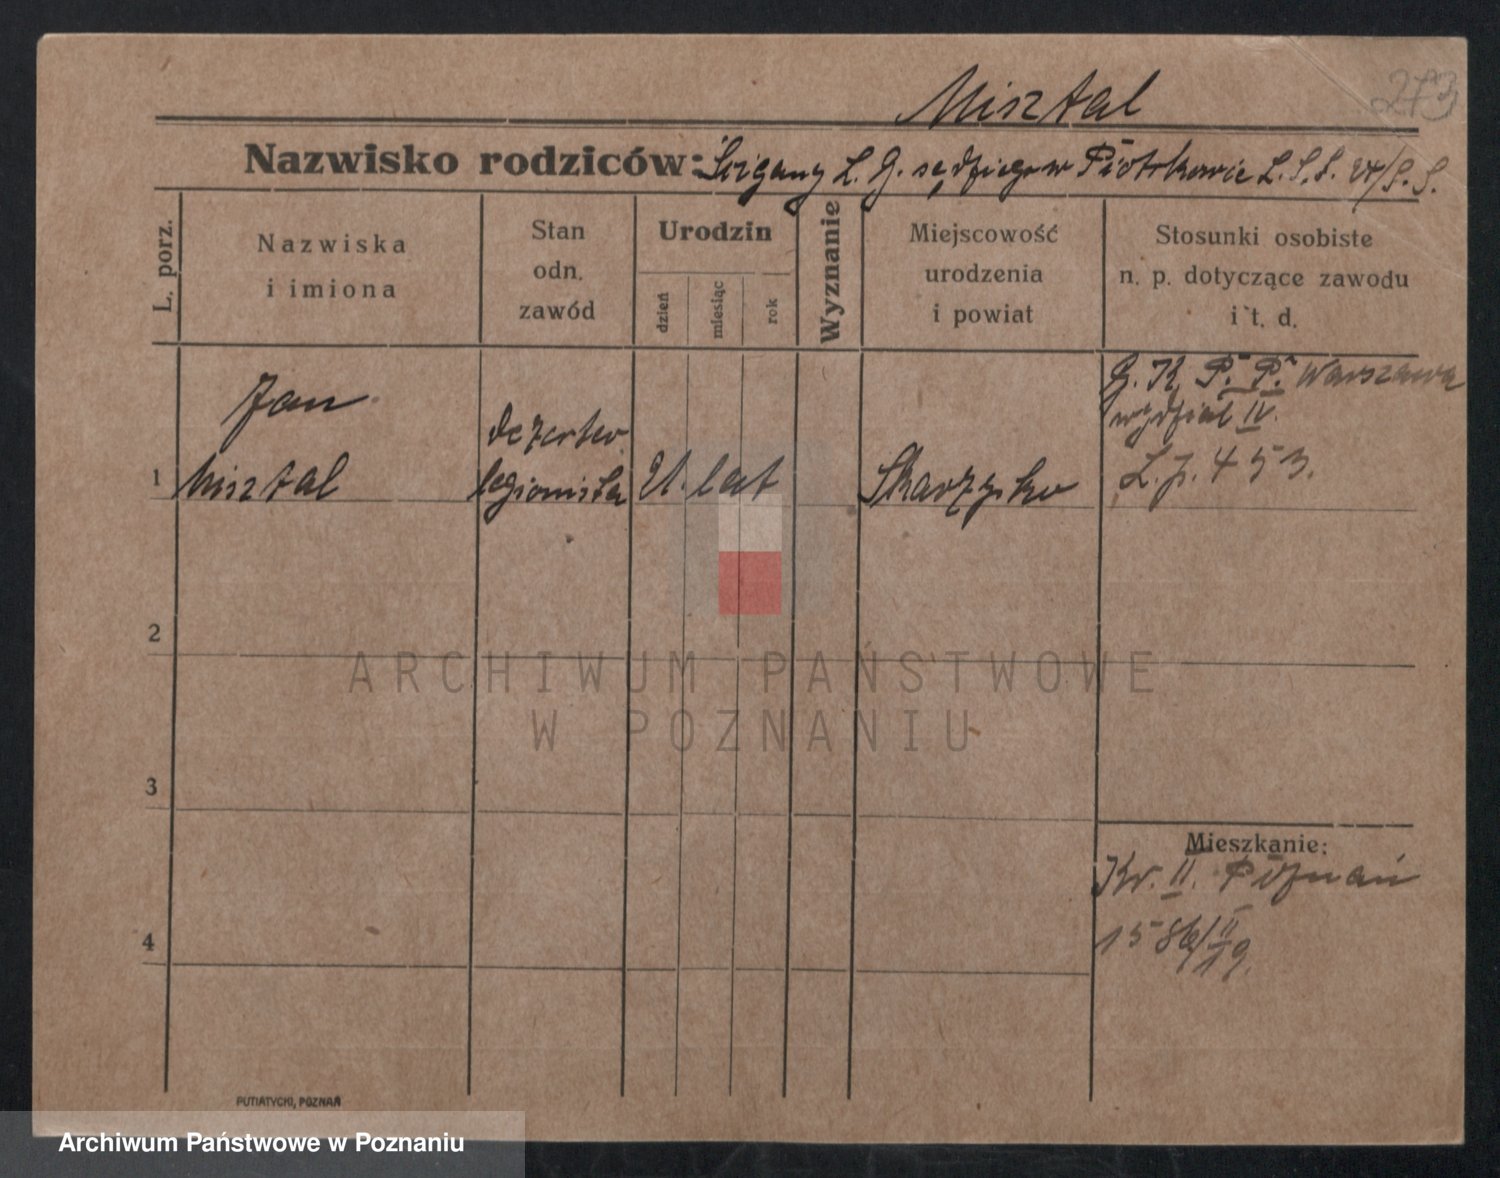 273
Misztal
Nazwisko rodziców: Ścigany L. G. sędziego w Piotrkowie L. S. S.
L. porz.
Nazwiska
i imiona
Stan
odn.
zawód
Urodzin
dzień
miesiąc
rok
Wyznanie
Miejscowość
urodzenia
i powiat
Stosunki osobiste
n. p. dotyczące zawodu
i t. d.
Jan
1 Misztal
dezerter
legionista
21. lat
Skarzysko
G. K. P. P. Warszawa
wydział IV.
L. j. 453.
2
3
4
Mieszkanie:
Kr. II. Poznań
1586/II
19.
PUTIATYCKI, POZNAŃ
ARCHIWUM PAŃSTWOWE
W POZNANIU
Archiwum Państwowe w Poznaniu